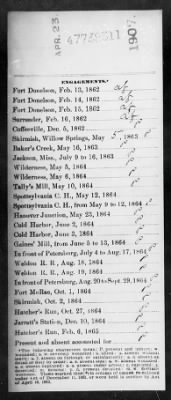 APR. 23
1907.
47739511
ENGAGEMENTS.*
Fort Donelson, Feb. 13, 1862 at
Fort Donelson, Feb. 14, 1862 at
Fort Donelson, Feb. 15, 1862 at
Surrender, Feb. 16, 1862 at
Coffeeville, Dec. 5, 1862
Skirmish, Willow Springs, May 5, 1863 p
Baker's Creek, May 16, 1863 p
Jackson, Miss., July 9 to 16, 1863 p
Wilderness, May 5, 1864 p
Wilderness, May 6, 1864 p
Tally's Mill, May 10, 1864 p
Spottsylvania C. H., May 12, 1864
Spottsylvania C. H., from May 9 to 12, 1864 p
Hanover Junction, May 23, 1864 p
Cold Harbor, June 2, 1864 p
Cold Harbor, June 3, 1864 p
Gaines' Mill, from June 5 to 13, 1864 p
In front of Petersburg, July 4 to Aug. 17, 1864 p
Weldon R. R., Aug. 18, 1864 p
Weldon R. R., Aug. 19, 1864 p
In front of Petersburg, Aug. 20 to Sept. 29, 1864 p
Fort McRae, Oct. 1, 1864 p
Skirmish, Oct. 2, 1864 p
Hatcher's Run, Oct. 27, 1864 p
Jarratt's Station, Dec. 10, 1864 p
Hatcher's Run, Feb. 6, 1865 p
Present and absent accounted for